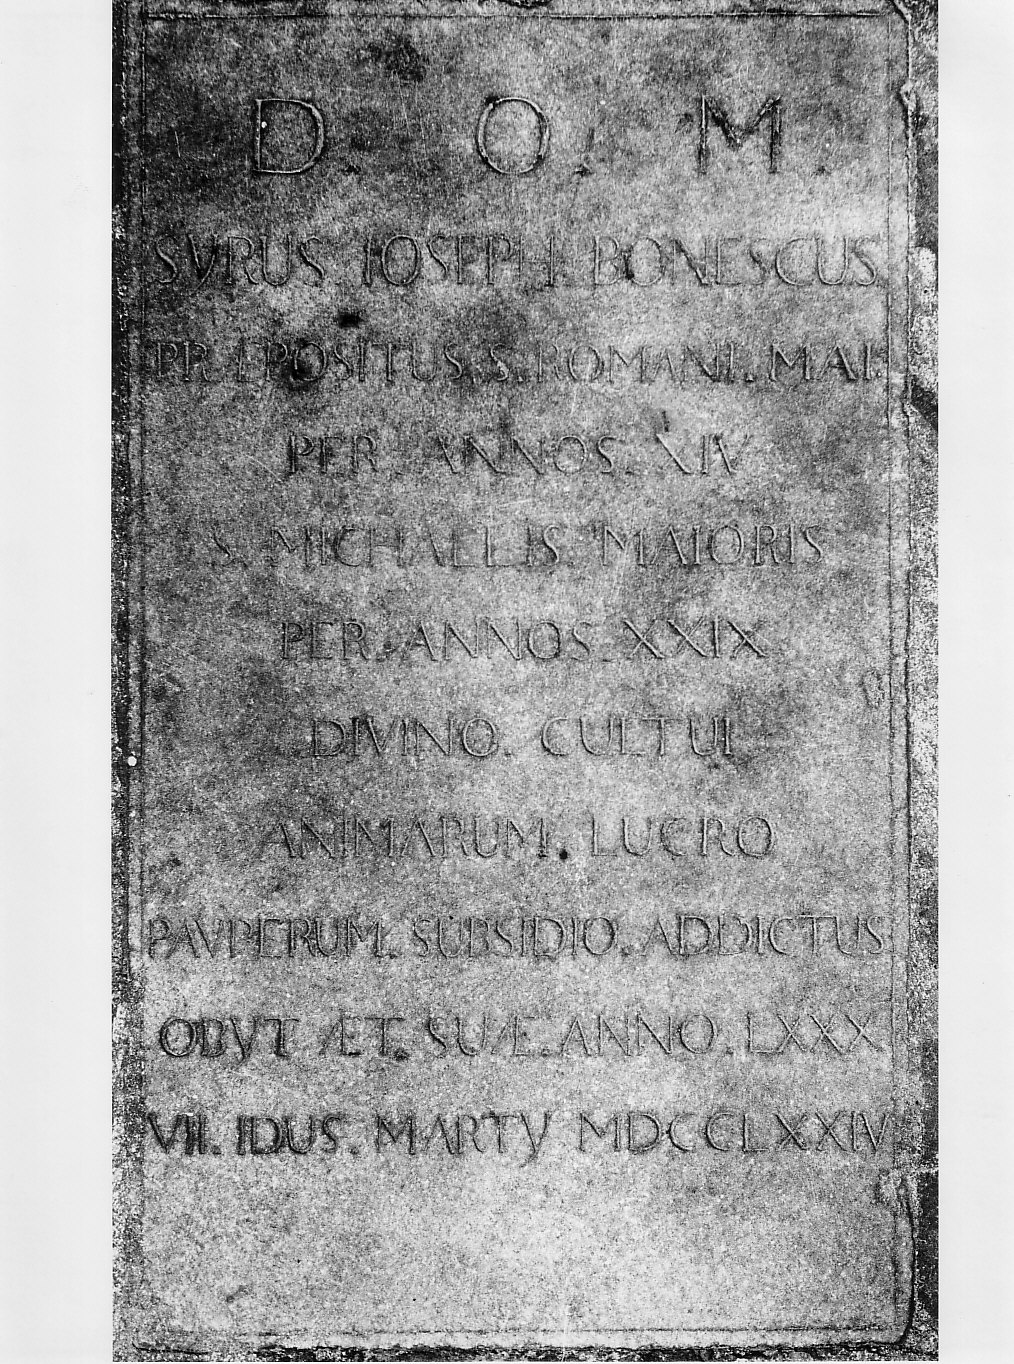 D. O. M.
SVRUS IOSEPH BONESCUS
PRÆPOSITUS S. ROMANI. MAI.
PER ANNOS XIV
S. MICHAELIS MAIORIS
PER. ANNOS. XXIX
DIVINO. CULTUI
ANIMARUM. LUCRO
PAVPERUM. SUBSIDIO. ADDICTUS
OBVT ÆT. SUÆ. ANNO. LXXX
VII. IDUS. MARTY MDCCLXXIV